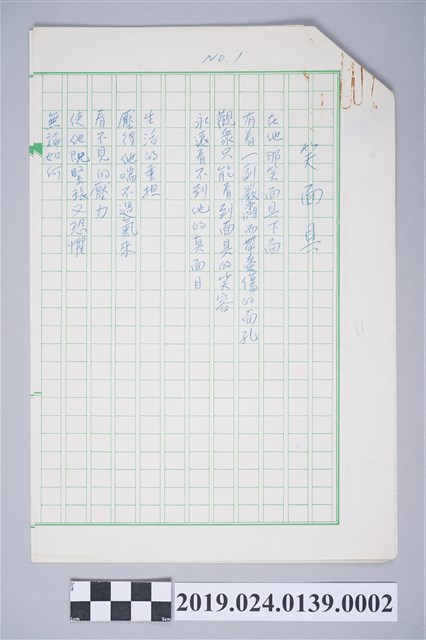 NO. 1
笑面具
在他那笑面具下面
有着一副嚴肅而帶憂傷的面孔
觀衆只能看到面具的笑容
永遠看不到他的真面目
生活的重担
壓得他喘不過氣來
看不見的壓力
使他既緊張又恐懼
無論如何
1cm
5cm
2019.024.0139.0002